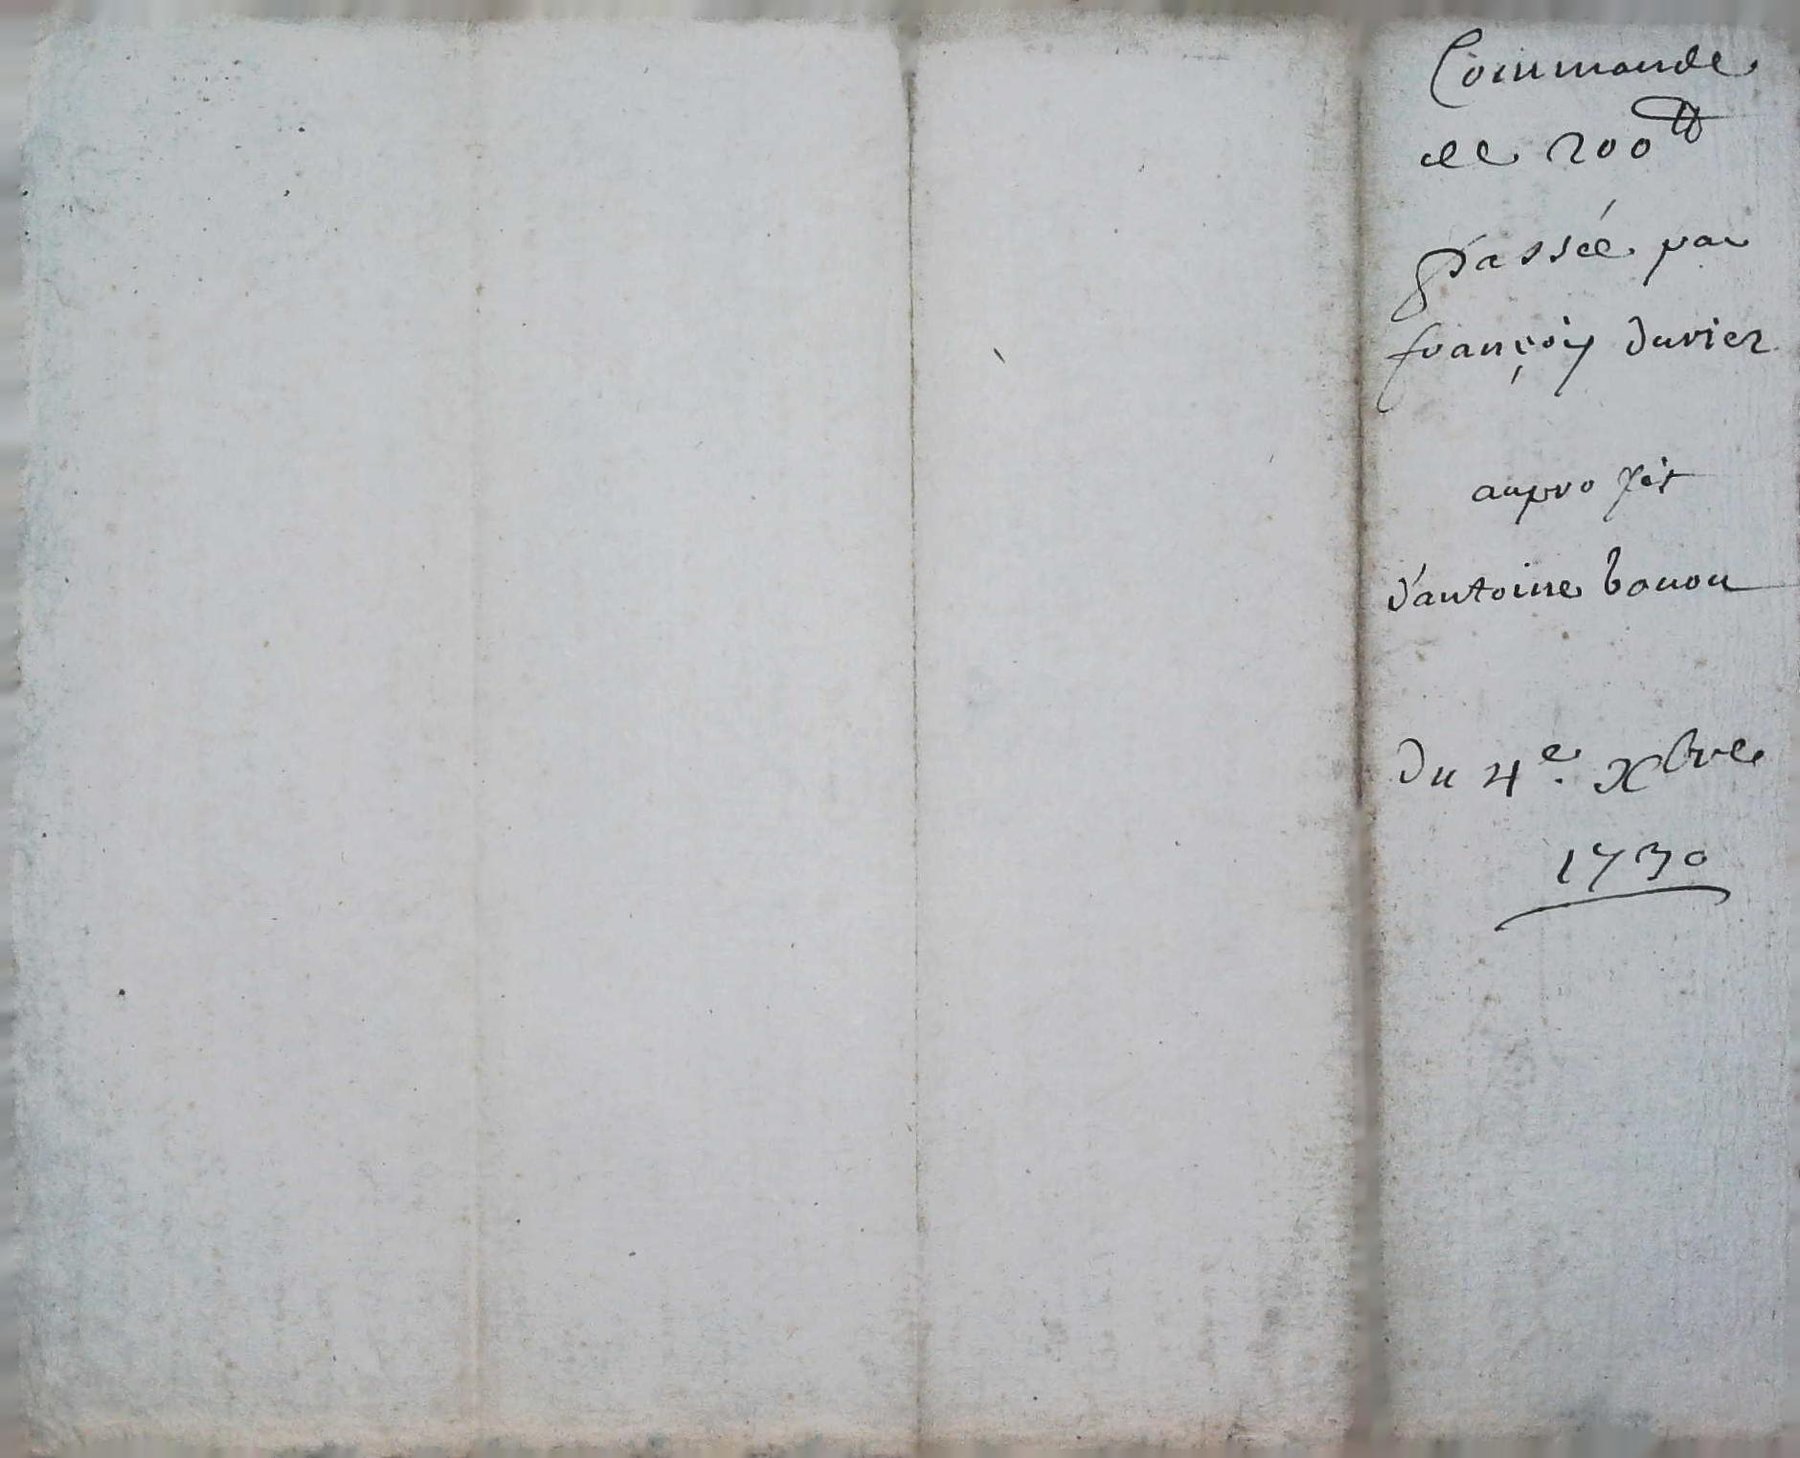 Commande
de 200 ₶
passée par
françois duvier
au profit
d'antoine bonon
du 4e. Xbre
1730